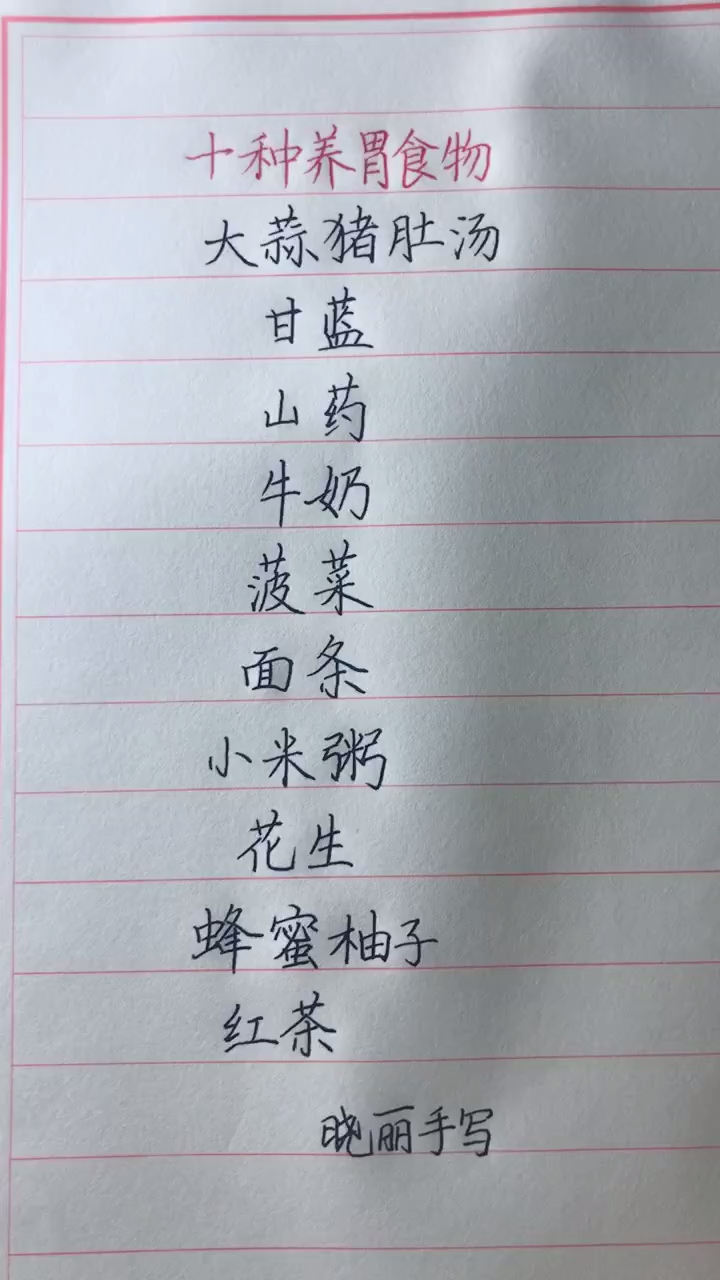 十种养胃食物
大蒜猪肚汤
甘蓝
山药
牛奶
菠菜
面条
小米粥
花生
蜂蜜柚子
红茶
晓丽手写